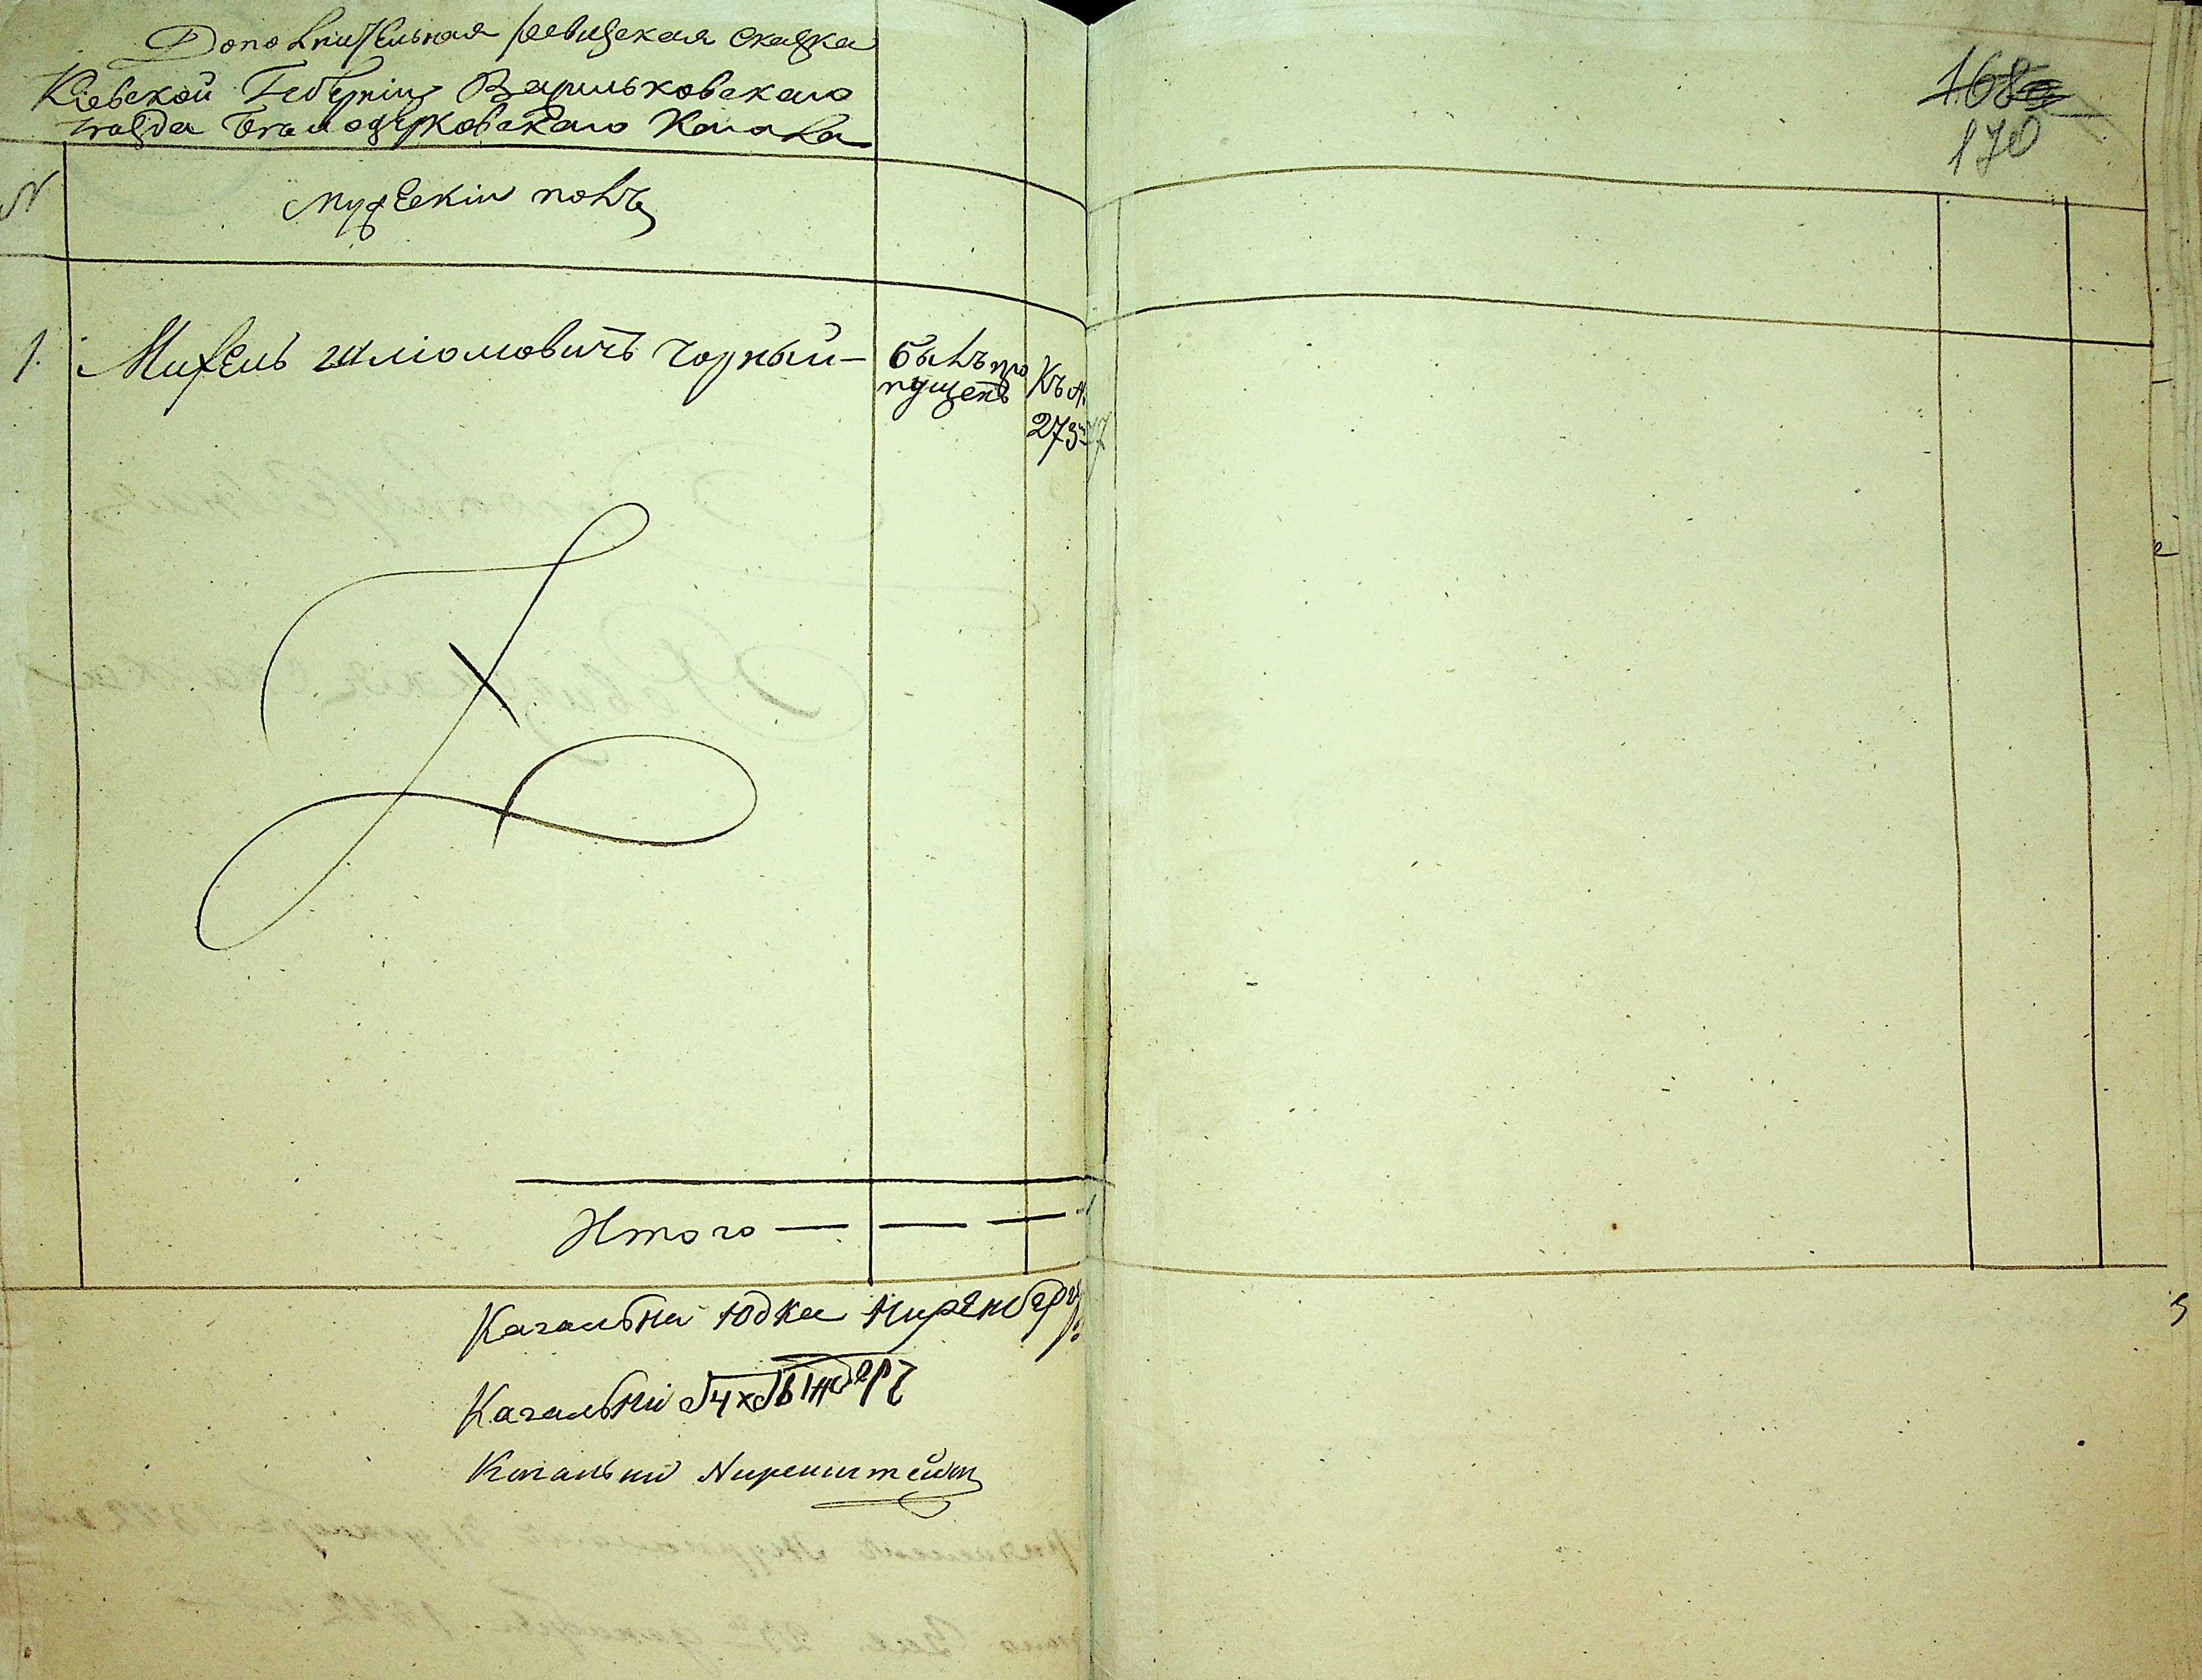 Дополнительная ревизская сказка
Кіевской Губерніи Васильковского
уезда Белоцерковского Кагала
168
170
N
мужескій полъ
1. Михель Шліомовичъ Чорный — былъ про
пущенъ
Къ N.
273
Итого — — —
Кагальны Юдка Ниренберг
Кагальни
Кагальный Ниренштейн